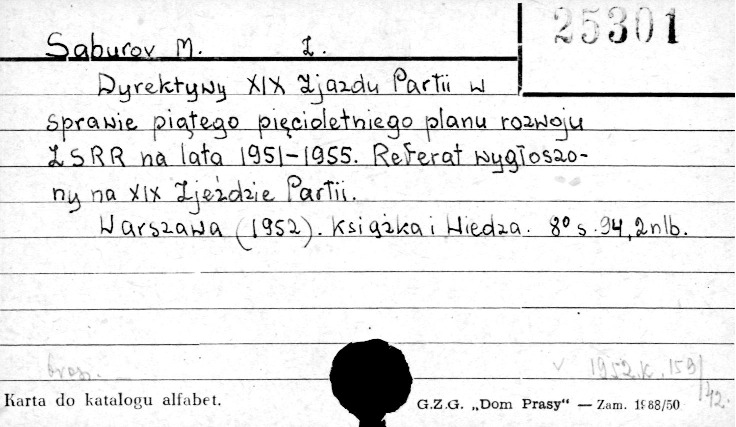 25301
Saburov M. Z.
Dyrektywy XIX Zjazdu Partii w
sprawie piątego pięcioletniego planu rozwoju
ZSRR na lata 1951-1955. Referat wygłoszo-
ny na XIX Zjeździe Partii.
Warszawa (1952). Książka i Wiedza. 8° s. 94, 2 nlb.
brosz.
1952.K.159/42.
Karta do katalogu alfabet.
G.Z.G. „Dom Prasy“ — Zam. 1968/50